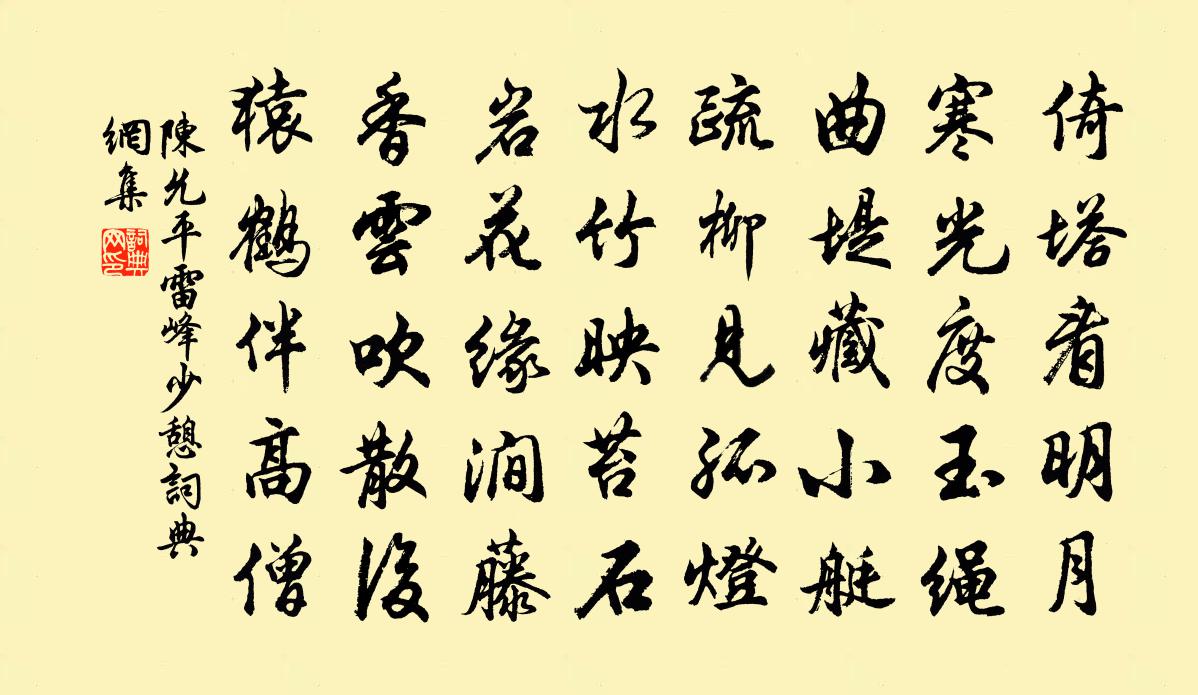 倚塔看明月
寒光度玉绳
曲堤藏小艇
疏柳见孤燈
水竹映苔石
岩花缘澗藤
香雲吹散後
猿鹤伴高僧
陳允平雷峰少憩詞典
網集
詞典
网印